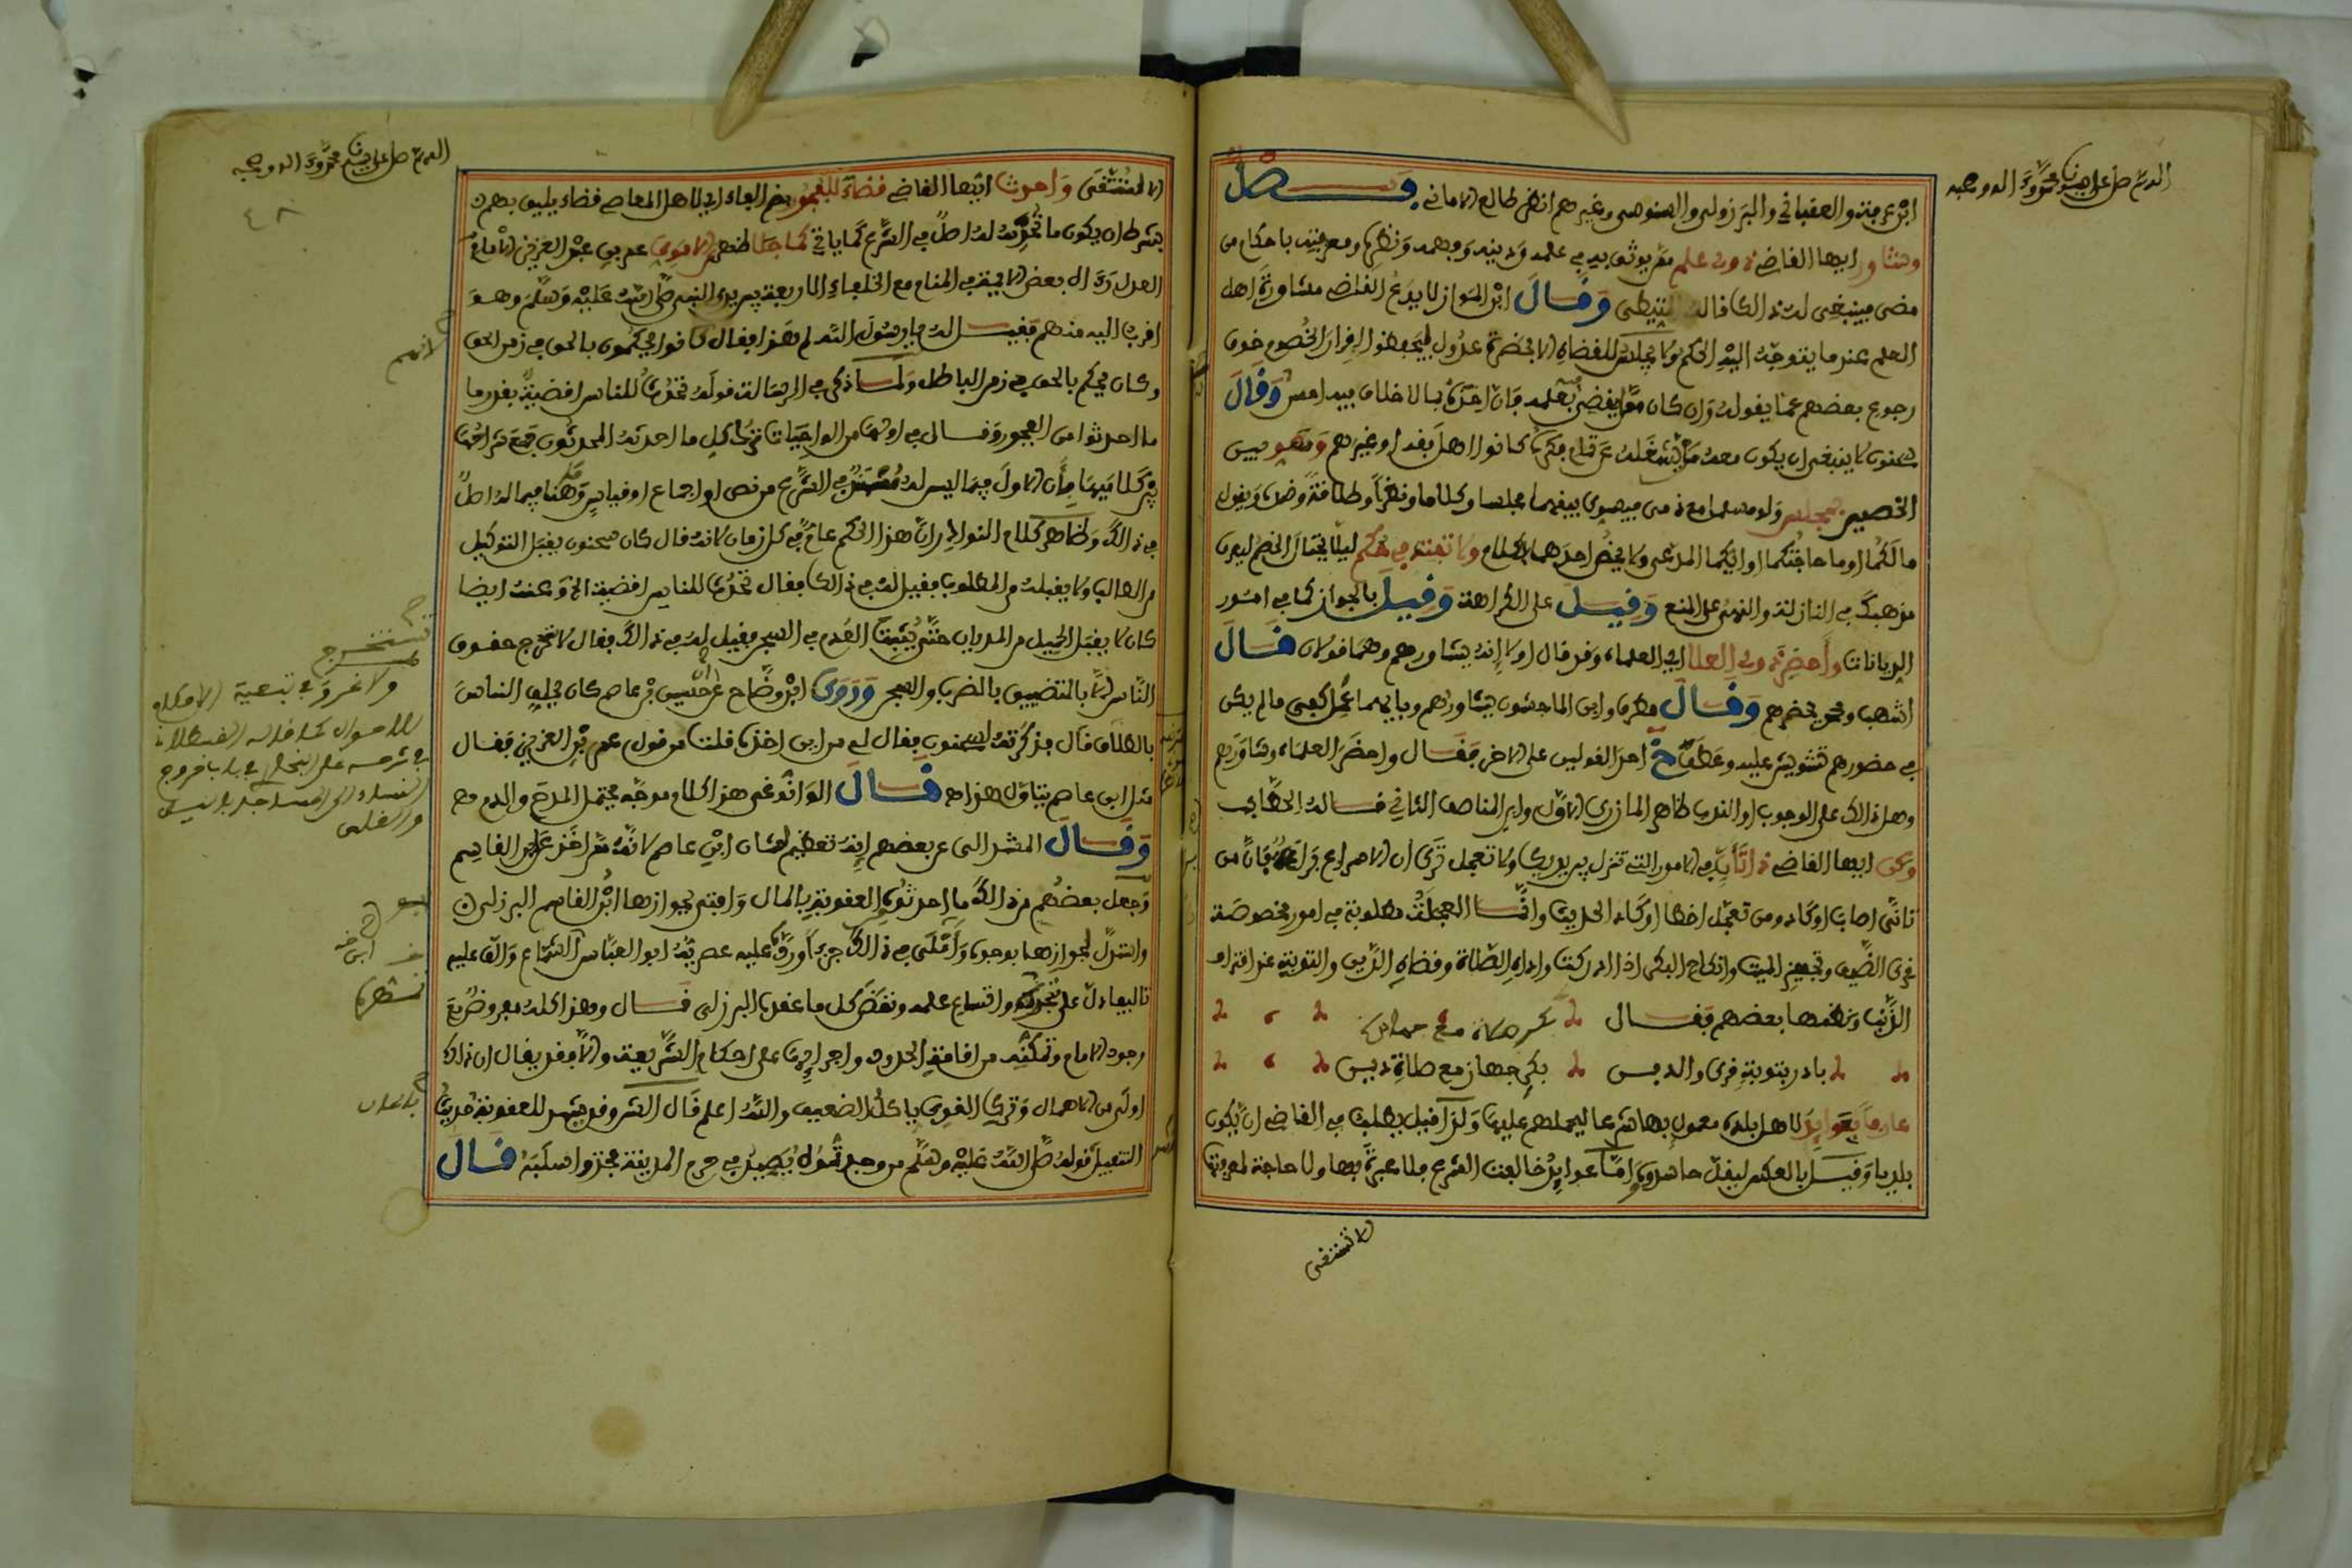 اللهم صل على سيدنا محمد وآله وصحبه
ابن عرفة والعقباني والبرزولي والسنوسي وغيرهم انظر طالع الاماني فصل
وشاور ايها القاضي ذوي علم ممن يوثق به في علمه ودينه وفهمه ونظره ومعرفته باحكام من
مضى فينبغي له ذالك قاله المتيطي وقال ابن المواز لا يدع القاضي مشاورة اهل
العلم عندما يتوجه اليه الحكم ولا يجلس للقضاء الا بحضرة عدول ليحفظوا اقرار الخصوم خوف
رجوع بعضهم عما يقول وان كان ممن يقضي بعلمه فان اخذه بالاخلاف فيه احسن وقال
سحنون لا ينبغي ان يكون معه من يشغله عن فكره كانوا اهل فقه او غيرهم وسو بين
الخصمين بمجلس ولو مسلما مع ذمي فيسوي بينهما مجلسا وكلاما ونظرا وطلاقة وجه ويقول
ما لكما او ما حاجتكما او ايكما المدعي ولا يخص احدهما بالكلام ولا تفت في حكم ليلا يحتال الخصم ليعرف
مذهبك في النازلة والنهي على المنع وقيل على الكراهة وقيل بالجواز كما في امور
الديانات وأحضر ذوي العلم اي العلماء وقد قال اولا انه يشاورهم وهما قولان قال
اشهب ومحمد يحضرهم وقال مطرف وابن الماجشون يشاورهم وبايهما عمل كفى ما لم يكن
في حضورهم تشويش عليه وعطف خ احد القولين على الاخر فقال واحضر العلماء وشاورهم
وهل ذالك على الوجوب او الندب ظاهر المازري الاول وابن المناصف الثاني قاله الحطاب
وكن ايها القاضي ذا تأن في الامور التي تنزل بين يديك ولا تعجل ترى ان الامر دع فان من
تانى اصاب او كاد ومن تعجل اخطا او كاد الحديث وانما العجلة مطلوبة في امور مخصوصة
قرى الضيف وتجهيز الميت وانكاح البكر اذا ادركت واداء الصلاة وقضاء الدين والتوبة عند اقتراف
الذنب ونظمها بعضهم فقال
بادر بتوبة قرى والدين بكر جهاز مع صلاة دين
عارفا بعوايد لاهل بلده معمول بها شرعا ليحملهم عليها ولذا قيل يطلب في القاضي ان يكون
بلديا وقيل بالعكس ليقل حاسدوه واما عوايد خالفت الشرع فلا عبرة بها ولا حاجة لمعرفتها
لا تستفتى
اللهم صل على سيدنا محمد وآله وصحبه
٤٨
لا تستفتى واحدث ايها القاضي قضاء للفجور بضم الفاء اي لاهل المعاصي قضاء يليق بهم
بشرط ان يكون ما تحدثه له اصل في الشرع كما ياتي كما جا عن الاموي عمر بن عبد العزيز الامام
العدل رءاه بعض الايمة في المنام مع الخلفاء الاربعة بين يدي النبي صلى الله عليه وسلم وهو
اقرب اليه منهم فقيل له يا رسول الله لم هذا فقال كانوا يحكمون بالحق في زمن الحق
وكان يحكم بالحق في زمن الباطل ولما ذكر في الرسالة قوله تحدث للناس اقضية بقدر ما
ما احدثوا من الفجور وقال في اولها من الواجبات ترك كل ما احدثه المحدثون جمع شراحها
بين كلاميها بأن الاول فيما ليس له مستند في الشرع من نص او اجماع او قياس وهنا فيما له اصل
في ذالك وظاهر كلام النوادر ان هذا الحكم عام في كل زمان لانه قال كان سحنون يقبل التوكيل
من الطالب ولا يقبله من المطلوب فقيل له في ذالك فقال تحدث للناس اقضية الخ وعنه ايضا
كان لا يقبل الحميل من المديان حتى يثبت العدم في السجن فقيل له في ذالك فقال لا تخرج حقوق
الناس الا بالتضييق بالضرب والسجن وروى ابن وضاح ان حسين بن عاصم كان يحلف الناس
بالطلاق قال فذكرته لسحنون فقال لي من اين اخذه قلت من قول عمر بن عبد العزيز فقال
مثل ابن عاصم يتاول هذا اهـ قال الوانوغي هذا كلام موجه يحتمل المدح والذم اهـ
وقال المشدالي عن بعضهم انه تعظيم لشان ابن عاصم لانه ممن اخذ عن ابن القاسم
وجعل بعضهم من ذالك ما احدثوه العقوبة بالمال وافتى بجوازها ابو القاسم البرزلي
واستدل لجوازها بوجوه وأملى في ذالك جزءا ورد عليه عصريه ابو العباس الشماع وألف عليه
تاليفا دل على تحريه واتساع علمه ونقض كل ما عقده البرزلي قال وهذا كله مفروض مع
وجود الامام وتمكنه من اقامة الحدود واجرائها على احكام الشريعة والا فقد يقال ان ذلك
اولى من الاهمال وترك القوي ياكل الضعيف والله اعلم قال الشروقد يشهد للعقوبة حديث
التعبيل قوله صلى الله عليه وسلم من وجدتموه يصيد في حرم المدينة فخذوا سلبه قال
تستخرج
ولا غرو في تبعية الاحكام
للاحوال كما قاله القسطلاني
في شرحه على البخاري في باب خروج
النساء الى المساجد بالليل
والغلس